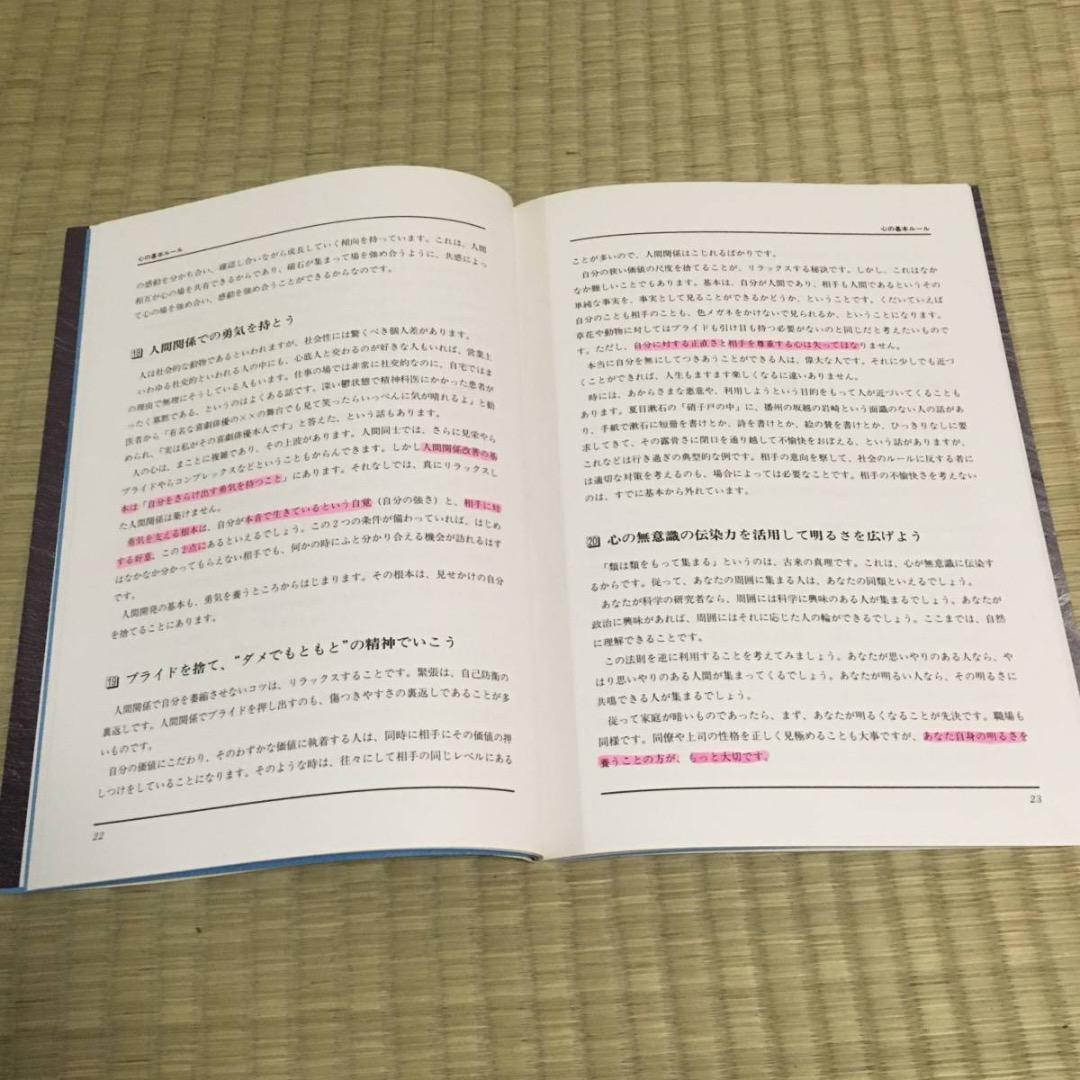 心の基本ルール
の感動を分かち合い、確認し合いながら成長していく傾向を持っています。これは、人間
相互が心の場を共有できるからであり、磁石が集まって場を強め合うように、共感によっ
て心の場を強め合い、感動を強め合うことができるからなのです。
18 人間関係での勇気を持とう
人は社会的な動物であるといわれますが、社会性には驚くべき個人差があります。
いわゆる社交的といわれる人の中にも、心底人と交わるのが好きな人もいれば、営業上
の理由で無理にそうしている人もいます。仕事の場では非常に社交的なのに、自宅ではま
ったく寡黙である、というのはよくある話です。深い鬱状態で精神科医にかかった患者が
医者から「有名な喜劇俳優の××の舞台でも見て笑ったらいっぺんに気が晴れるよ」と勧
められ、「実は私がその喜劇俳優本人です」と答えた、という話もあります。
人の心は、まことに複雑であり、その上波があります。人間同士では、さらに見栄やら
プライドやらコンプレックスなどということもからんできます。しかし人間関係改善の基
本は「自分をさらけ出す勇気を持つこと」にあります。それなしでは、真にリラックスし
た人間関係は築けません。
勇気を支える根本は、自分が本音で生きているという自覚（自分の強さ）と、相手に対
する好意、この2点にあるといえるでしょう。この2つの条件が備わっていれば、はじめ
はなかなか分かってもらえない相手でも、何かの時にふと分かり合える機会が訪れるはず
です。
人間開発の基本も、勇気を養うところからはじまります。その根本は、見せかけの自分
を捨てることにあります。
19 プライドを捨て、“ダメでもともと”の精神でいこう
人間関係で自分を萎縮させないコツは、リラックスすることです。緊張は、自己防衛の
裏返しです。人間関係でプライドを押し出すのも、傷つきやすさの裏返しであることが多
いものです。
自分の価値にこだわり、そのわずかな価値に執着する人は、同時に相手にその価値の押
しつけをしていることになります。そのような時は、往々にして相手の同じレベルにある
22
心の基本ルール
ことが多いので、人間関係はこじれるばかりです。
自分の狭い価値の尺度を捨てることが、リラックスする秘訣です。しかし、これはなか
なか難しいことでもあります。基本は、自分が人間であり、相手も人間であるというその
単純な事実を、事実として見ることができるかどうか、ということです。くだいていえば
自分のことも相手のことも、色メガネをかけないで見られるか、ということになります。
草花や動物に対してはプライドも引け目も持つ必要がないのと同じだと考えたいもので
す。ただし、自分に対する正直さと相手を尊重する心は失ってはなりません。
本当に自分を無にしてつきあうことができる人は、偉大な人です。それに少しでも近づ
くことができれば、人生もますます楽しくなるに違いありません。
時には、あからさまな悪意や、利用しようという目的をもって人が近づいてくることも
あります。夏目漱石の「硝子戸の中」に、播州の坂越の岩崎という面識のない人の話があ
り、手紙で漱石に短冊を書けとか、詩を書けとか、絵の賛を書けとか、ひっきりなしに要
求してきて、その露骨さに閉口を通り越して不愉快をおぼえる、という話がありますが、
これなどは行き過ぎの典型的な例です。相手の意向を察して、社会のルールに反する者に
は適切な対策を考えるのも、場合によっては必要なことです。相手の不愉快さを考えない
のは、すでに基本から外れています。
20 心の無意識の伝染力を活用して明るさを広げよう
「類は類をもって集まる」というのは、古来の真理です。これは、心が無意識に伝染す
るからです。従って、あなたの周囲に集まる人は、あなたの同類といえるでしょう。
あなたが科学の研究者なら、周囲には科学に興味のある人が集まるでしょう。あなたが
政治に興味があれば、周囲にはそれに応じた人の輪ができるでしょう。ここまでは、自然
に理解できることです。
この法則を逆に利用することを考えてみましょう。あなたが思いやりのある人なら、や
はり思いやりのある人間が集まってくるでしょう。あなたが明るい人なら、その明るさに
共鳴できる人が集まるでしょう。
従って家庭が暗いものであったら、まず、あなたが明るくなることが先決です。職場も
同様です。同僚や上司の性格を正しく見極めることも大事ですが、あなた自身の明るさを
養うことの方が、もっと大切です。
23